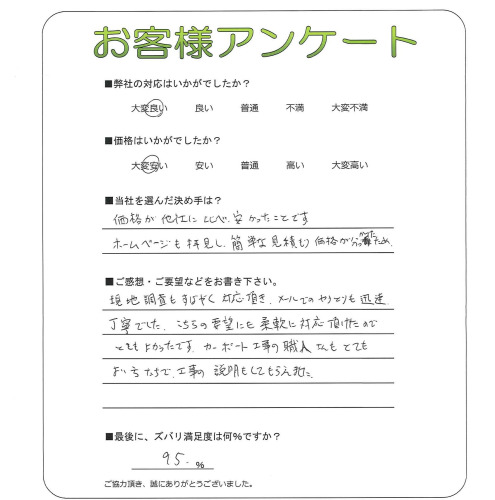 お客様アンケート
■弊社の対応はいかがでしたか？
大変良い 良い 普通 不満 大変不満
■価格はいかがでしたか？
大変安い 安い 普通 高い 大変高い
■当社を選んだ決め手は？
価格が他社に比べ、安かったことです
ホームページも拝見し、簡単な見積もり価格が分かったため。
■ご感想・ご要望などをお書き下さい。
現地調査もすばやく対応頂き、メールでのやりとりも迅速
丁寧でした。こちらの要望にも柔軟に対応頂けたので
とてもよかったです。カーポート工事の職人さんもとても
よい方たちで、工事の説明もしてもらえました。
■最後に、ズバリ満足度は何%ですか？
95. %
ご協力頂き、誠にありがとうございました。